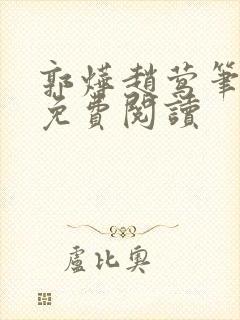 郭燁趙莺筆
免費閱讀
盧比奧